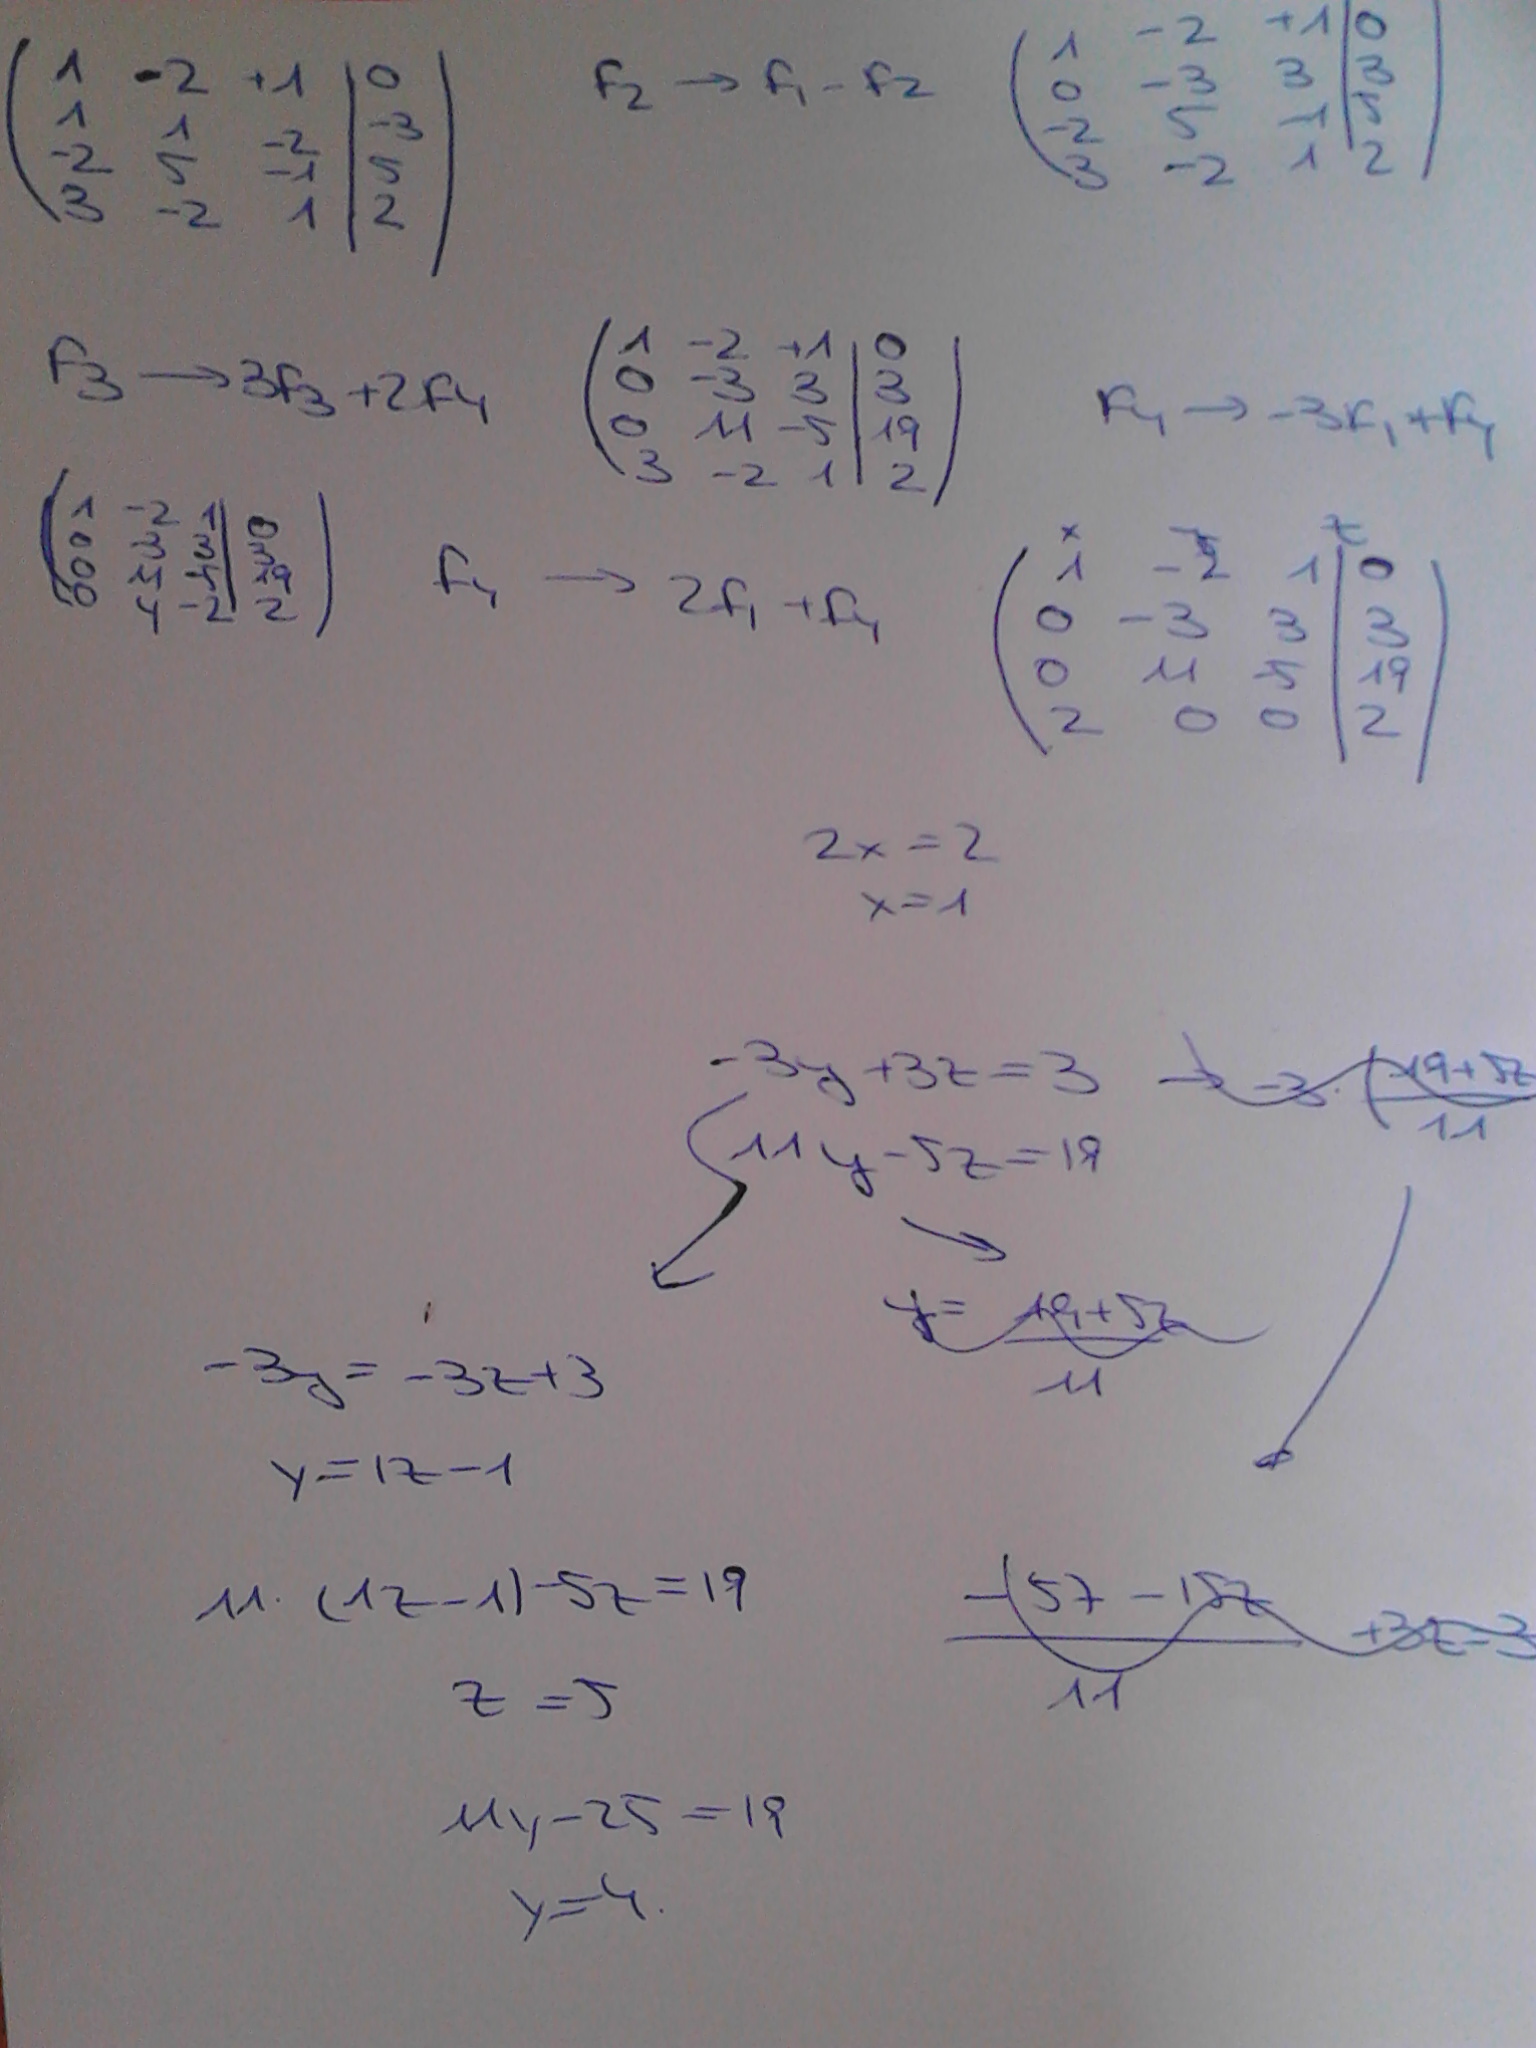 1 -2 +1 | 0
1 1 -2 | -3
-2 5 -1 | 5
3 -2 1 | 2
F2 → F1 - F2
1 -2 +1 | 0
0 -3 3 | 3
-2 5 -1 | 5
3 -2 1 | 2
F3 → 3F3 + 2F4
1 -2 +1 | 0
0 -3 3 | 3
0 11 -5 | 19
3 -2 1 | 2
F4 → -3F1 + F4
1 -2 1 | 0
0 -3 3 | 3
0 11 -5 | 19
0 4 -2 | 2
F4 → 2F1 + F4
x z
1 -2 1 | 0
0 -3 3 | 3
0 11 -5 | 19
2 0 0 | 2
2x = 2
x = 1
-3y + 3z = 3 → -3 · (19+5z
11
11y - 5z = 19
y = 19+5z
11
-3y = -3z + 3
y = 1z - 1
11 · (1z - 1) - 5z = 19
-(57 - 15z + 3z = 3
11
z = 5
11y - 25 = 19
y = 4.